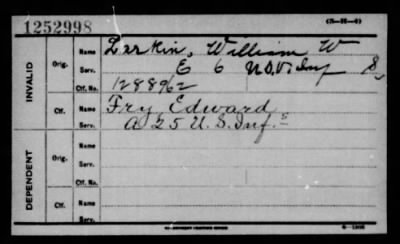 (3-31-6)
1252998
INVALID
Orig.
Name
Larkin, William W
Serv.
E 6 U.S.V. Inf
Ctf. No.
128896 2
Ctf.
Name
Fry Edward
Serv.
A 25 U.S. Inf.
DEPENDENT
Orig.
Name
Serv.
Ctf. No.
Ctf.
Name
Serv.